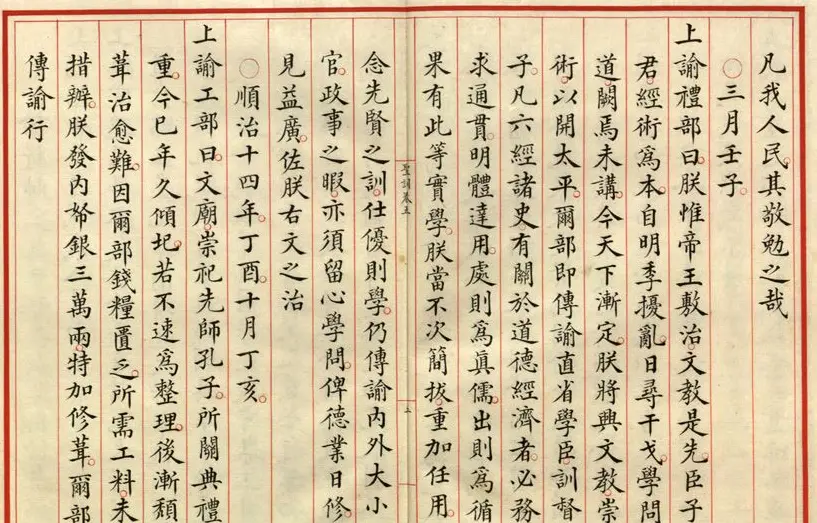 凡我人民其敬勉之哉
○三月壬子
上諭禮部曰朕惟帝王敷治文教是先臣子
君經術爲本自明季擾亂日尋干戈學問
道闕焉未講今天下漸定朕將興文教崇
術以開太平爾部即傳諭直省學臣訓督
子凡六經諸史有關於道德經濟者必務
求通貫明體達用處則爲眞儒出則爲循
果有此等實學朕當不次簡拔重加任用
聖訓卷五
上
念先賢之訓仕優則學仍傳諭內外大小
官政事之暇亦須留心學問俾德業日修
見益廣佐朕右文之治
○順治十四年丁酉十月丁亥
上諭工部曰文廟崇祀先師孔子所關典禮
重今已年久傾圮若不速爲整理後漸頹
葺治愈難因爾部錢糧匱乏所需工料未
措辦朕發內帑銀三萬兩特加修葺爾部
傳諭行